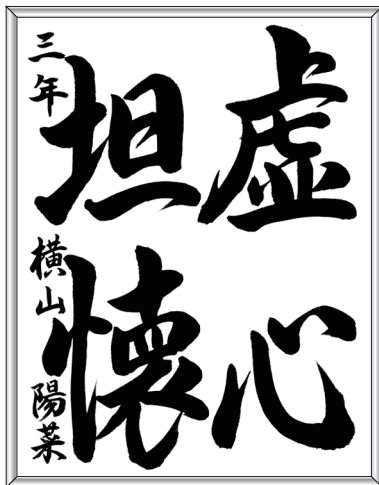 虚心
坦懐
三年 横山陽菜